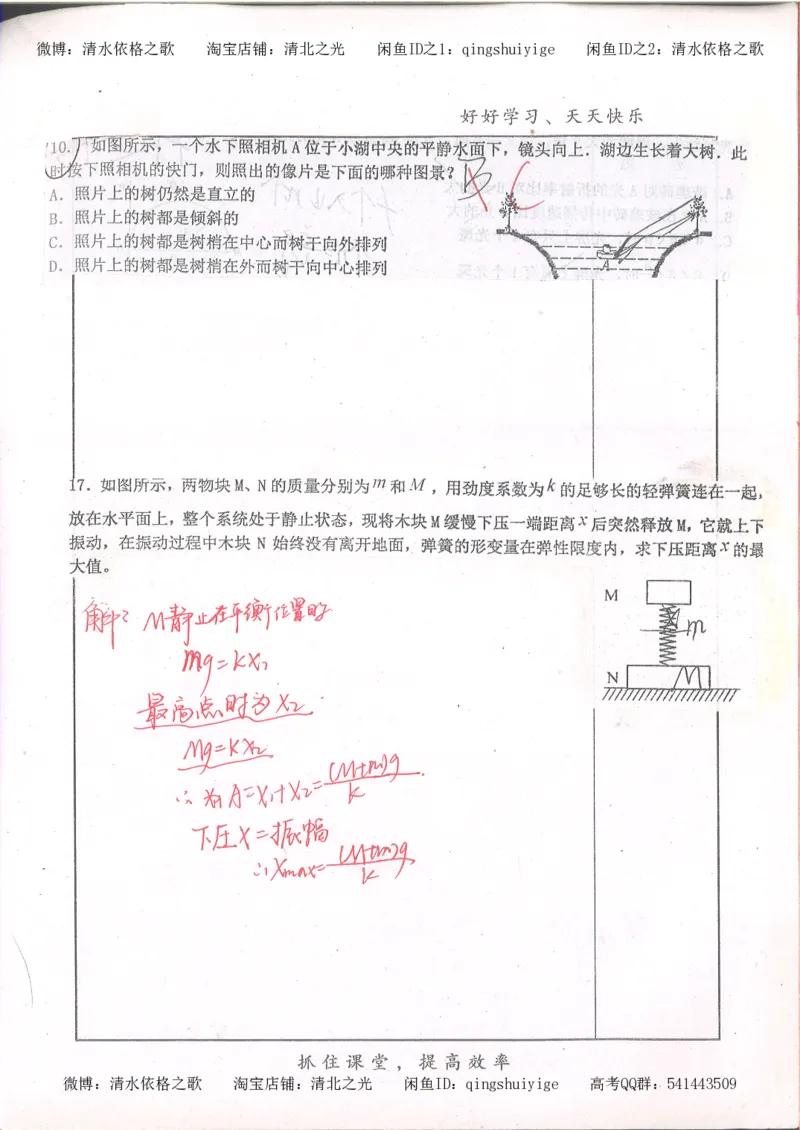 微博：清水依格之歌 淘宝店铺：清北之光 闲鱼ID之1：qingshuiyige 闲鱼ID之2：清水依格之歌
好好学习、天天快乐
10．如图所示，一个水下照相机A位于小湖中央的平静水面下，镜头向上．湖边生长着大树．此
时按下照相机的快门，则照出的像片是下面的哪种图景？
B C
A．照片上的树仍然是直立的
B．照片上的树都是倾斜的
C．照片上的树都是树梢在中心而树干向外排列
D．照片上的树都是树梢在外而树干向中心排列
A
17．如图所示，两物块M、N的质量分别为m和M，用劲度系数为k的足够长的轻弹簧连在一起，
放在水平面上，整个系统处于静止状态，现将木块M缓慢下压一端距离x后突然释放M，它就上下
振动，在振动过程中木块 N 始终没有离开地面，弹簧的形变量在弹性限度内，求下压距离x的最
大值。
M
m
N M
解： M静止在平衡位置时
mg=kx₁
最高点时为x₂
Mg=kx₂
∴ A=x₁+x₂=(M+m)g/k
下压x=振幅
∴xmax=(M+m)g/k
抓住课堂，提高效率
微博：清水依格之歌 淘宝店铺：清北之光 闲鱼ID：qingshuiyige 高考QQ群：541443509